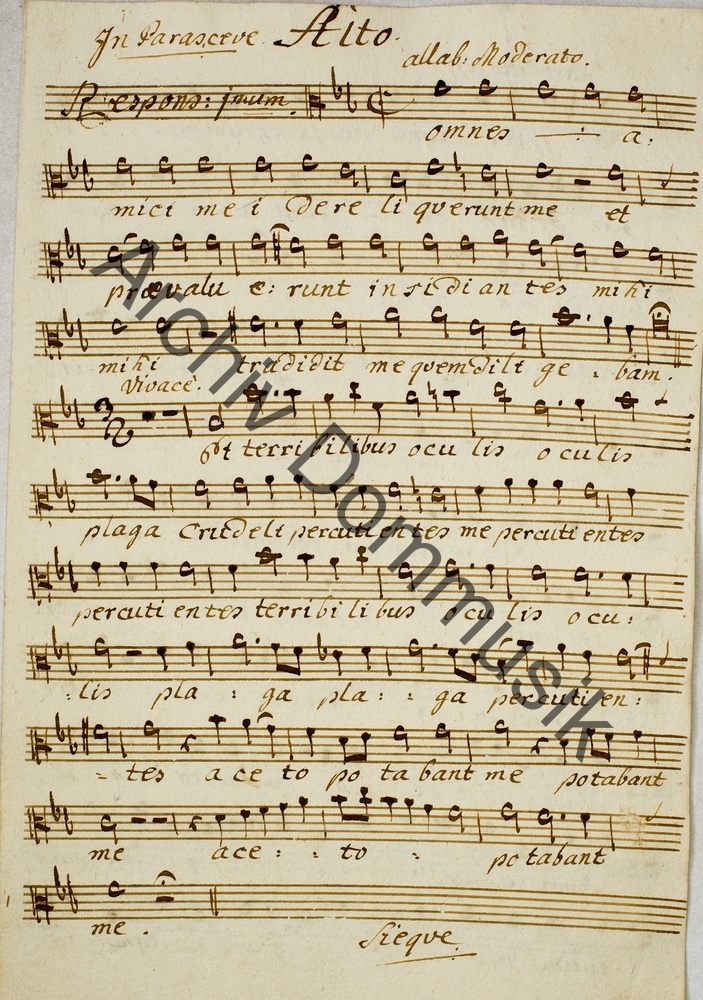 In Parasceve. Alto.
allab: Moderato.
Respons: primum.
omnes a:
mici me i dere li querunt me et
prævalu e: runt insidian tes mihi
mihi tradidit me quem dili ge: bam.
Vivace.
Et terribilibus ocu lis oculis
plaga crudeli percutientes me percutientes
percutientes terribilibus oculis ocu:
:lis pla: ga pla: : ga percutien:
=tes aceto potabant me potabant
me ace: : to potabant
me.
Sieque
Archiv Dommusik